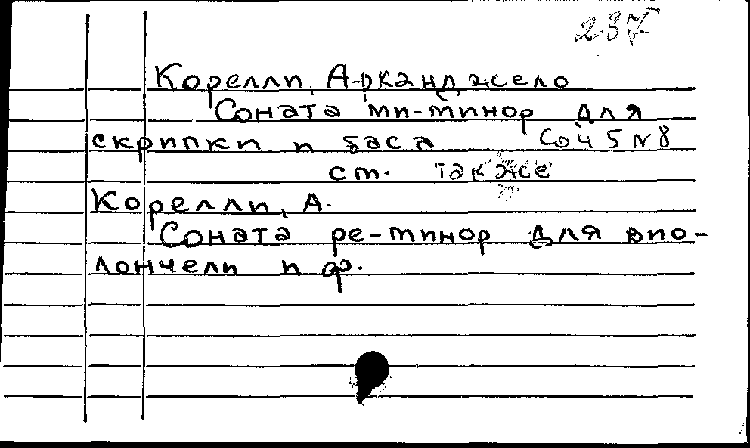 237
Корелли, Арканджело
Соната ми-минор для
скрипки и баса Соч 5 N8
см. также
Корелли, А.
Соната ре-минор для вио-
лончели и ф.